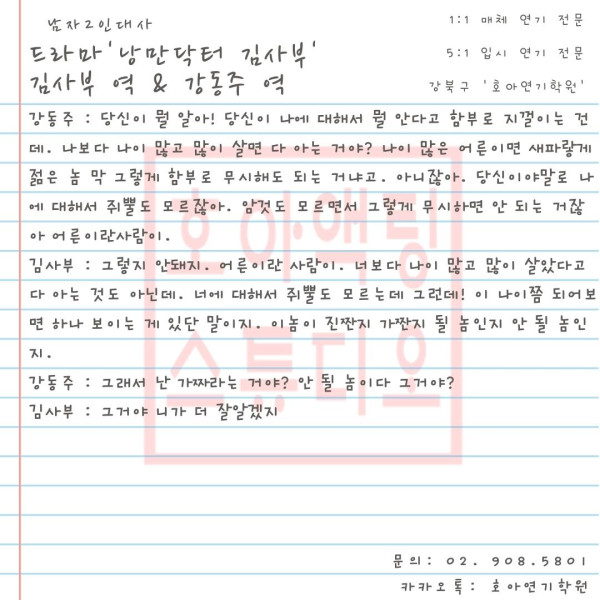 남자2인대사
1:1 매체 연기 전문
드라마 '낭만닥터 김사부'
5:1 입시 연기 전문
김사부 역 & 강동주 역
강북구 '호아연기학원'
강동주 : 당신이 뭘 알아! 당신이 나에 대해서 뭘 안다고 함부로 지껄이는 건
데. 나보다 나이 많고 많이 살면 다 아는 거야? 나이 많은 어른이면 새파랗게
젊은 놈 막 그렇게 함부로 무시해도 되는 거냐고. 아니잖아. 당신이야말로 나
에 대해서 쥐뿔도 모르잖아. 암것도 모르면서 그렇게 무시하면 안 되는 거잖
아 어른이란사람이.
김사부 : 그렇지 안돼지. 어른이란 사람이. 너보다 나이 많고 많이 살았다고
다 아는 것도 아닌데. 너에 대해서 쥐뿔도 모르는데 그런데! 이 나이쯤 되어보
면 하나 보이는 게 있단 말이지. 이놈이 진짠지 가짠지 될 놈인지 안 될 놈인
지.
강동주 : 그래서 난 가짜라는 거야? 안 될 놈이다 그거야?
김사부 : 그거야 니가 더 잘알겠지
호아액팅
스튜디오
문의: 02. 908.5801
카카오톡: 호아연기학원